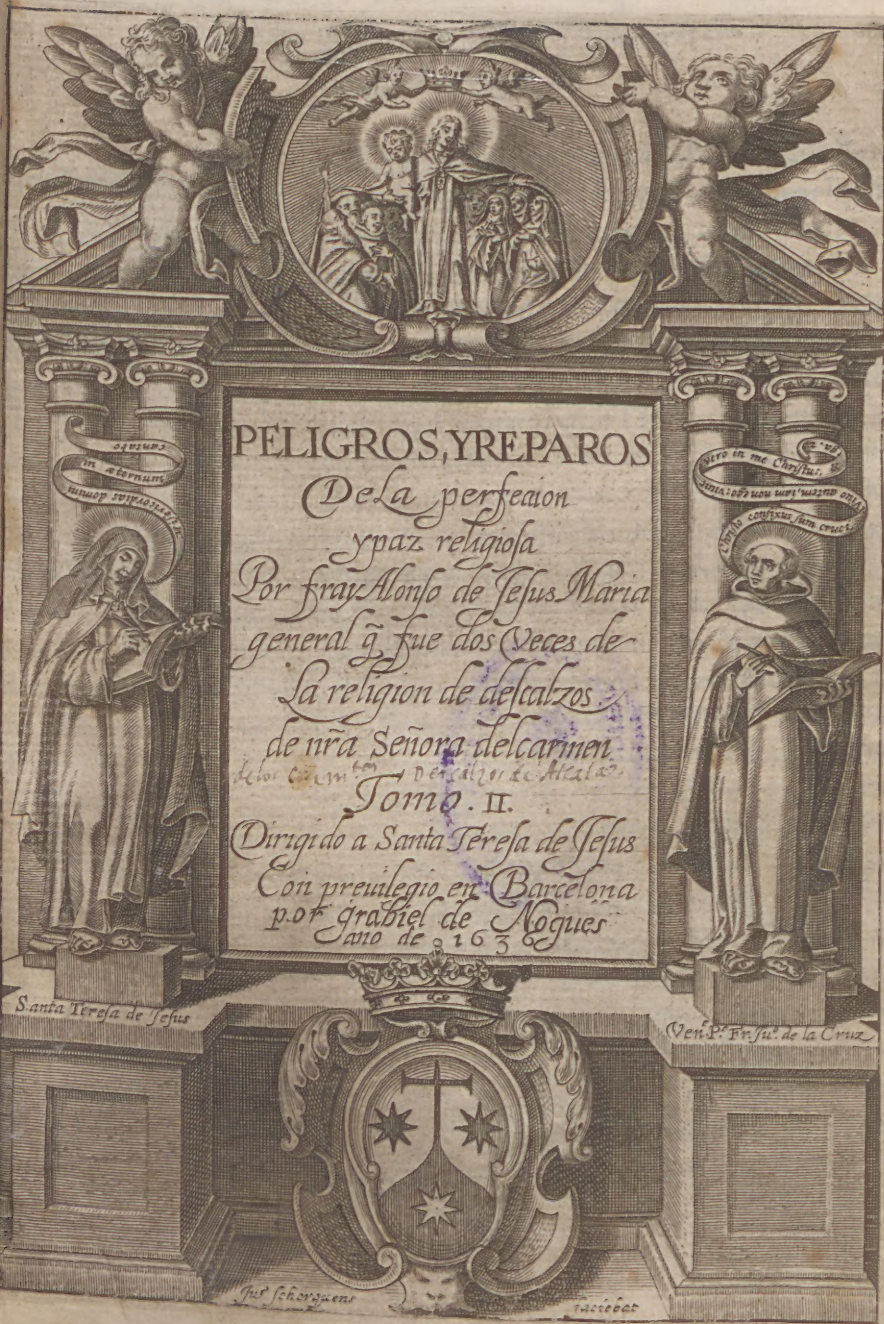 misericordias domini
in æternum
cantabo
Christo confixus sum cruci
vivo autem, iam non ego: vivit
vero in me Christus, &
Ga. 2.
PELIGROS, YREPAROS
De La perfecion
y paz religiosa
Por fray Alonso de Jesus Maria
general q̃ fue dos Veces de
La religion de descalzos
de nr̃a Señora delcarmen
de los Descalzos de Alcala
Tomo. II.
Dirigido a Santa Teresa de Jesus
Con previlegio en Barcelona
por grabiel de Nogues
año de 1636
Santa Teresa de Jesus
Ven. Pe. Fr. Juº. de la Cruz
Juº schorquens
faciebat